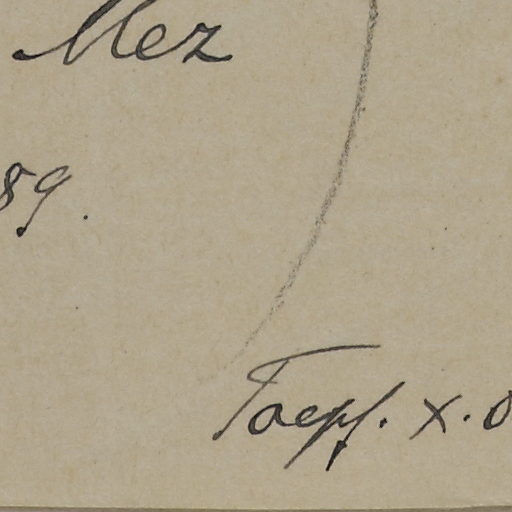 Mez
89.
Toepf. X. 0